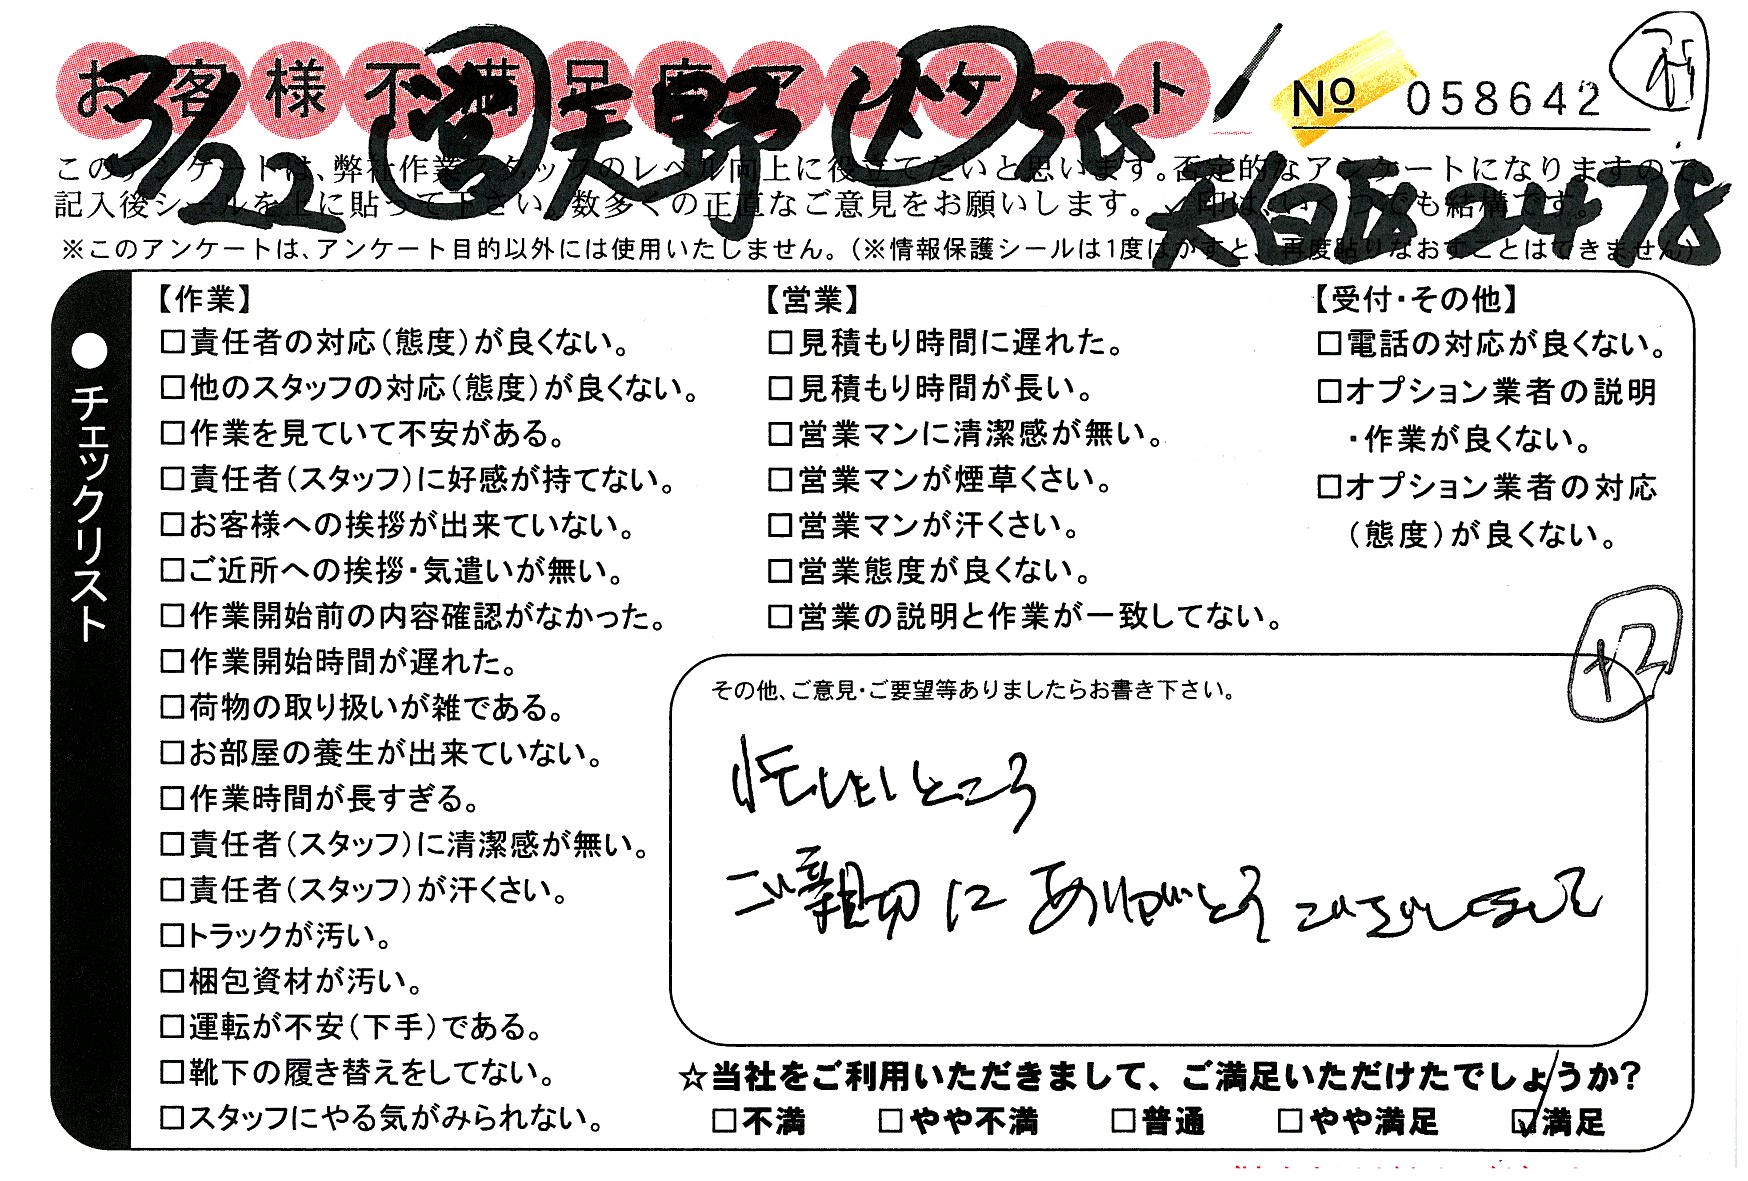 お客様不満足度アンケート
3/22 営 天野 作
No 058642
このアンケートは、弊社作業スタッフのレベル向上に役立てたいと思います。否定的なアンケートになりますので、
記入後シールを上に貼って下さい。数多くの正直なご意見をお願いします。✓印は、いくつでも結構です。
太白区 2478
※このアンケートは、アンケート目的以外には使用いたしません。(※情報保護シールは1度はがすと、再度貼りなおすことはできません)
●チェックリスト
【作業】
□責任者の対応(態度)が良くない。
□他のスタッフの対応(態度)が良くない。
□作業を見ていて不安がある。
□責任者(スタッフ)に好感が持てない。
□お客様への挨拶が出来ていない。
□ご近所への挨拶・気遣いが無い。
□作業開始前の内容確認がなかった。
□作業開始時間が遅れた。
□荷物の取り扱いが雑である。
□お部屋の養生が出来ていない。
□作業時間が長すぎる。
□責任者(スタッフ)に清潔感が無い。
□責任者(スタッフ)が汗くさい。
□トラックが汚い。
□梱包資材が汚い。
□運転が不安(下手)である。
□靴下の履き替えをしてない。
□スタッフにやる気がみられない。
【営業】
□見積もり時間に遅れた。
□見積もり時間が長い。
□営業マンに清潔感が無い。
□営業マンが煙草くさい。
□営業マンが汗くさい。
□営業態度が良くない。
□営業の説明と作業が一致してない。
【受付・その他】
□電話の対応が良くない。
□オプション業者の説明
・作業が良くない。
□オプション業者の対応
(態度)が良くない。
その他、ご意見・ご要望等ありましたらお書き下さい。
忙しいところ
ご親切に ありがとうございまして
☆当社をご利用いただきまして、ご満足いただけたでしょうか?
□不満 □やや不満 □普通 □やや満足 ☑満足